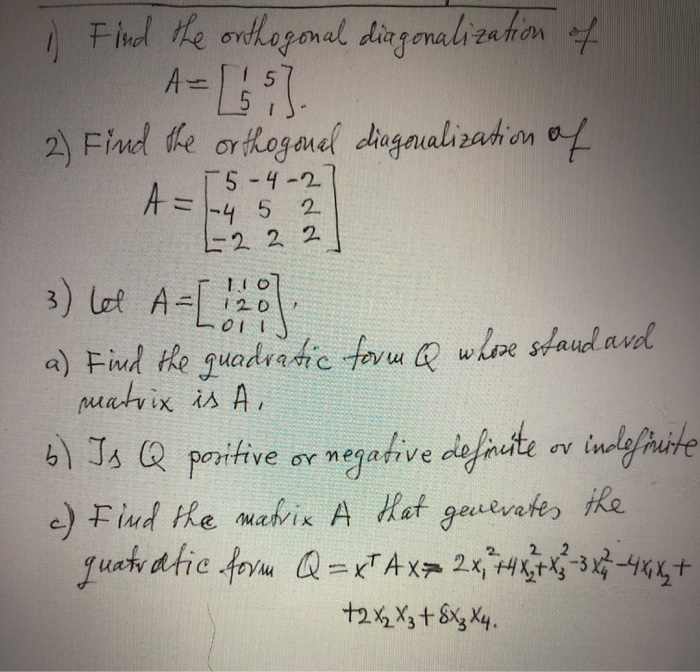 1) Find the orthogonal diagonalization of
A = [1 5
5 1].
2) Find the orthogonal diagonalization of
A = [5 -4 -2
-4 5 2
-2 2 2]
3) Let A = [1 1 0
1 2 0
0 1 1].
a) Find the quadratic form Q whose standard
matrix is A.
b) Is Q positive or negative definite or indefinite
c) Find the matrix A that generates the
quatratic form Q = xᵀAx = 2x₁²+4x₂²+x₃²-3x₄²-4x₁x₂+
+2x₂x₃+8x₃x₄.